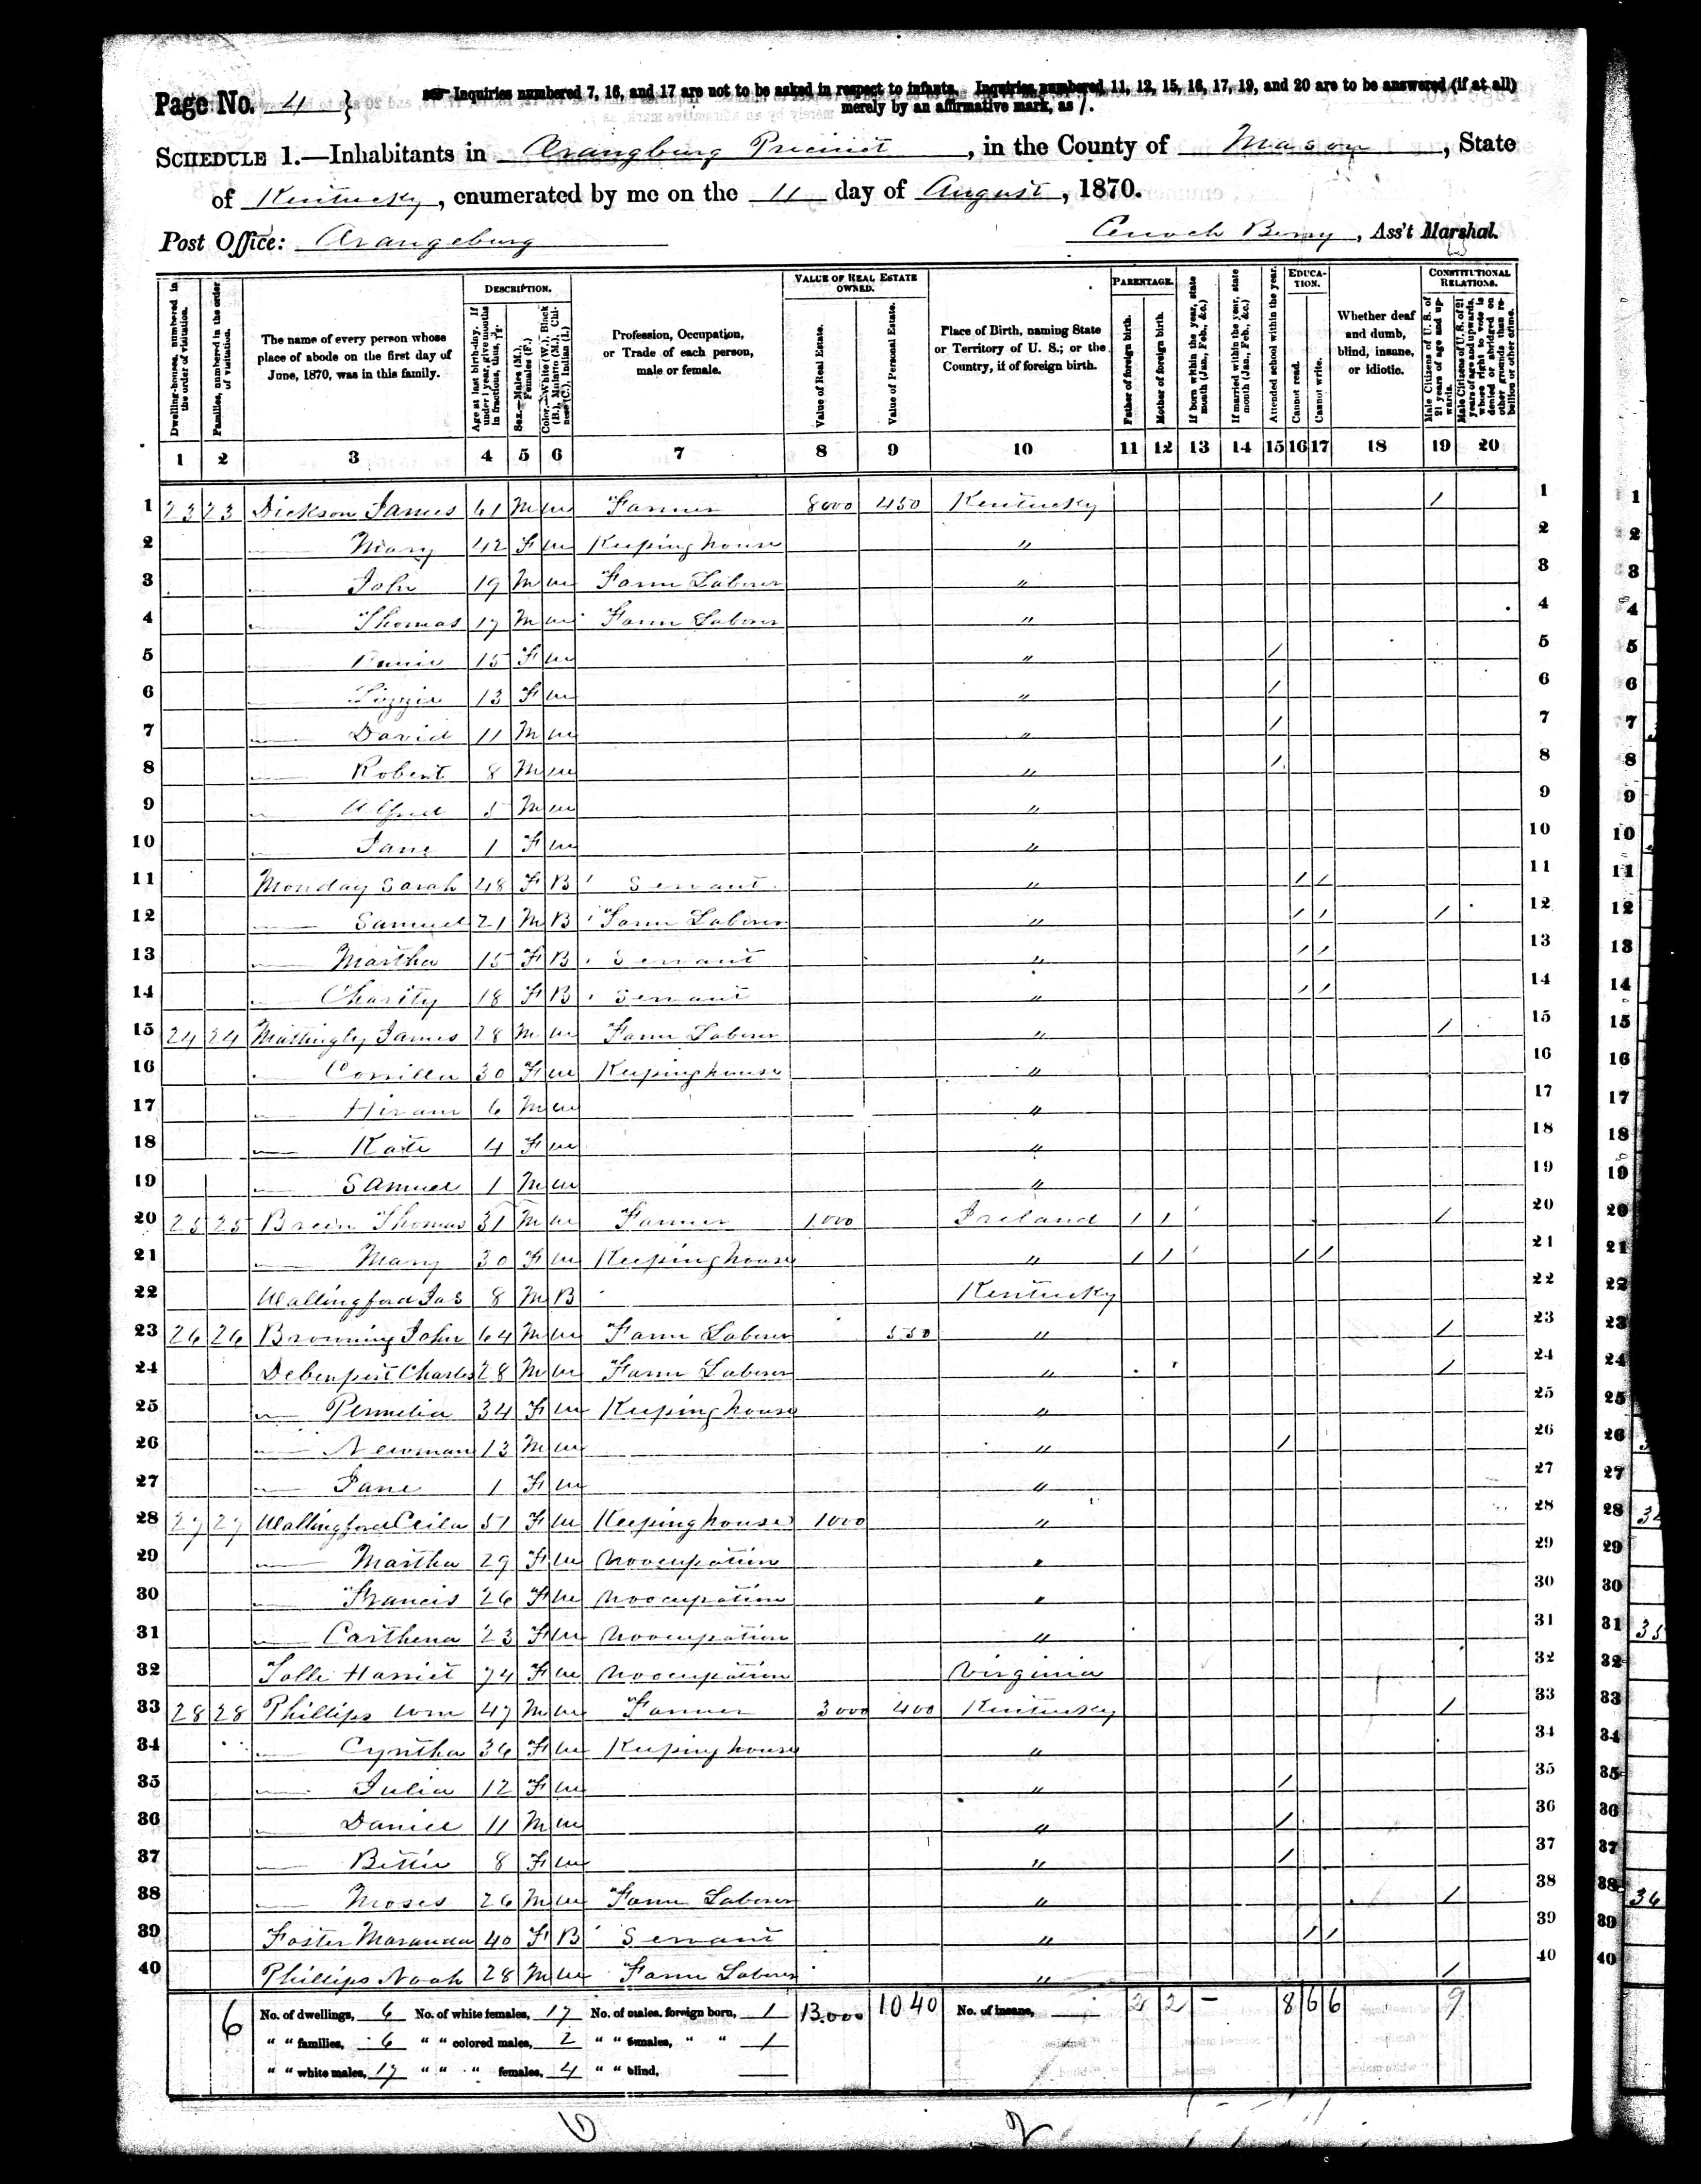 Page No. 4 }
Inquiries numbered 7, 16, and 17 are not to be asked in respect to infants. Inquiries numbered 11, 12, 15, 16, 17, 19, and 20 are to be answered (if at all)
merely by an affirmative mark, as /.
SCHEDULE 1.—Inhabitants in Orangburg Precinct, in the County of Mason, State
of Kentucky, enumerated by me on the 11 day of August, 1870.
Post Office: Orangeburg
Enoch Berry, Ass't Marshal.
Dwelling-houses, numbered in the order of visitation.
Families, numbered in the order of visitation.
The name of every person whose place of abode on the first day of June, 1870, was in this family.
DESCRIPTION.
Age at last birth-day. If under 1 year, give months in fractions, thus,
Sex.—Males (M.), Females (F.)
Color.—White (W.), Black (B.), Mulatto (M.), Chinese (C.), Indian (I.)
Profession, Occupation, or Trade of each person, male or female.
VALUE OF REAL ESTATE OWNED.
Value of Real Estate.
Value of Personal Estate.
Place of Birth, naming State or Territory of U. S.; or the Country, if of foreign birth.
PARENTAGE.
Father of foreign birth.
Mother of foreign birth.
If born within the year, state month (Jan., Feb., &c.)
If married within the year, state month (Jan., Feb., &c.)
Attended school within the year.
EDUCATION.
Cannot read.
Cannot write.
Whether deaf and dumb, blind, insane, or idiotic.
CONSTITUTIONAL RELATIONS.
Male Citizens of U. S. of 21 years of age and upwards.
Male Citizens of U. S. of 21 years of age and upwards, whose right to vote is denied or abridged on other grounds than rebellion or other crime.
1 2 3 4 5 6 7 8 9 10 11 12 13 14 15 16 17 18 19 20
1 23 23 Dickson James 61 M W Farmer 8000 450 Kentucky / 1
2 — Mary 42 F W Keeping house " 2
3 — John 19 M W Farm Laborer " 3
4 — Thomas 17 M W Farm Laborer " 4
5 — 15 F W " / 5
6 — Lizzie 13 F W " / 6
7 — David 11 M W " / 7
8 — Robert 8 M W " / 8
9 — Alfred 5 M W " 9
10 — Jane 1 F W " 10
11 Monday Sarah 48 F B Servant " / / 11
12 — Samuel 21 M B Farm Laborer " / / / 12
13 — Martha 15 F B Servant " / / 13
14 — Charity 18 F B Servant " / / 14
15 24 24 Mattingly James 28 M W Farm Laborer " / 15
16 — Corrilla 30 F W Keeping house " 16
17 — Hiram 6 M W " 17
18 — Kate 4 F W " 18
19 — Samuel 1 M W " 19
20 25 25 Breen Thomas 31 M W Farmer 1000 Ireland / / / 20
21 — Mary 30 F W Keeping house " / / / / 21
22 Wallingford Jas 8 M B Kentucky 22
23 26 26 Browning John 64 M W Farm Laborer 550 " / 23
24 Debenport Charles 28 M W Farm Laborer " / 24
25 — Permelia 34 F W Keeping house " 25
26 — Newman 13 M W " / 26
27 — Jane 1 F W " 27
28 27 27 Wallingford Ceila 51 F W Keeping house 1000 " 28
29 — Martha 29 F W No ocupation " 29
30 — Francis 26 F W No ocupation " 30
31 — Carthena 23 F W No ocupation " 31
32 Tolle Harriet 74 F W No ocupation Virginia 32
33 28 28 Phillips Wm 47 M W Farmer 3000 400 Kentucky / 33
34 — Cyntha 36 F W Keeping house " 34
35 — Julia 12 F W " / 35
36 — Daniel 11 M W " / 36
37 — Bettie 8 F W " / 37
38 — Moses 26 M W Farm Laborer " / 38
39 Foster Maranda 40 F B Servant " / / 39
40 Phillips Noah 28 M W Farm Laborer " / 40
6 No. of dwellings, 6 No. of white females, 17 No. of males, foreign born, 1 13.000 1040 No. of insane, 2 2 — 8 6 6 9
" " families, 6 " " colored males, 2 " " females, " " 1
" " white males, 17 " " " females, 4 " " blind,